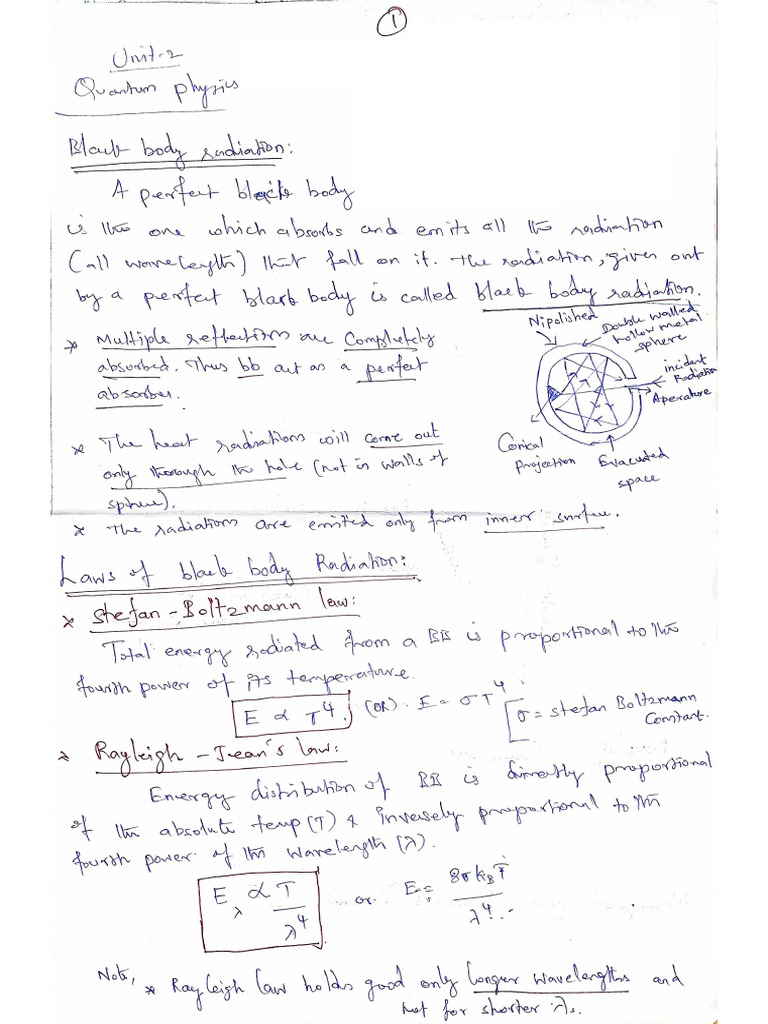 1
Unit-2
Quantum physics
Black body radiation:
A perfect black body
is the one which absorbs and emits all the radiation
(all wavelength) that fall on it. The radiation, given out
by a perfect black body is called black body radiation.
* Multiple reflections are completely
absorbed. Thus bb act as a perfect
absorber.
Nipolished
Double walled
hollow metal
sphere
incident
Radiation
Aperature
Conical
projection
Evacuated
space
* The heat radiations will come out
only thorough the hole (not in walls of
sphere).
* The radiations are emitted only from inner surface.
Laws of black body Radiation:
* Stefan-Boltzmann law:
Total energy radiated from a BB is proportional to the
fourth power of its temperature.
E ∝ T⁴. (OR). E = σT⁴ [σ = Stefan Boltzmann
Constant.
* Rayleigh - Jean's law:
Energy distribution of BB is directly proportional
of the absolute temp(T) & inversely proportional to the
fourth power of the wavelength (λ).
E_λ ∝ T/λ⁴ or E = 8πk_BT/λ⁴.
Note, * Rayleigh law holds good only longer wavelengths and
not for shorter λs.